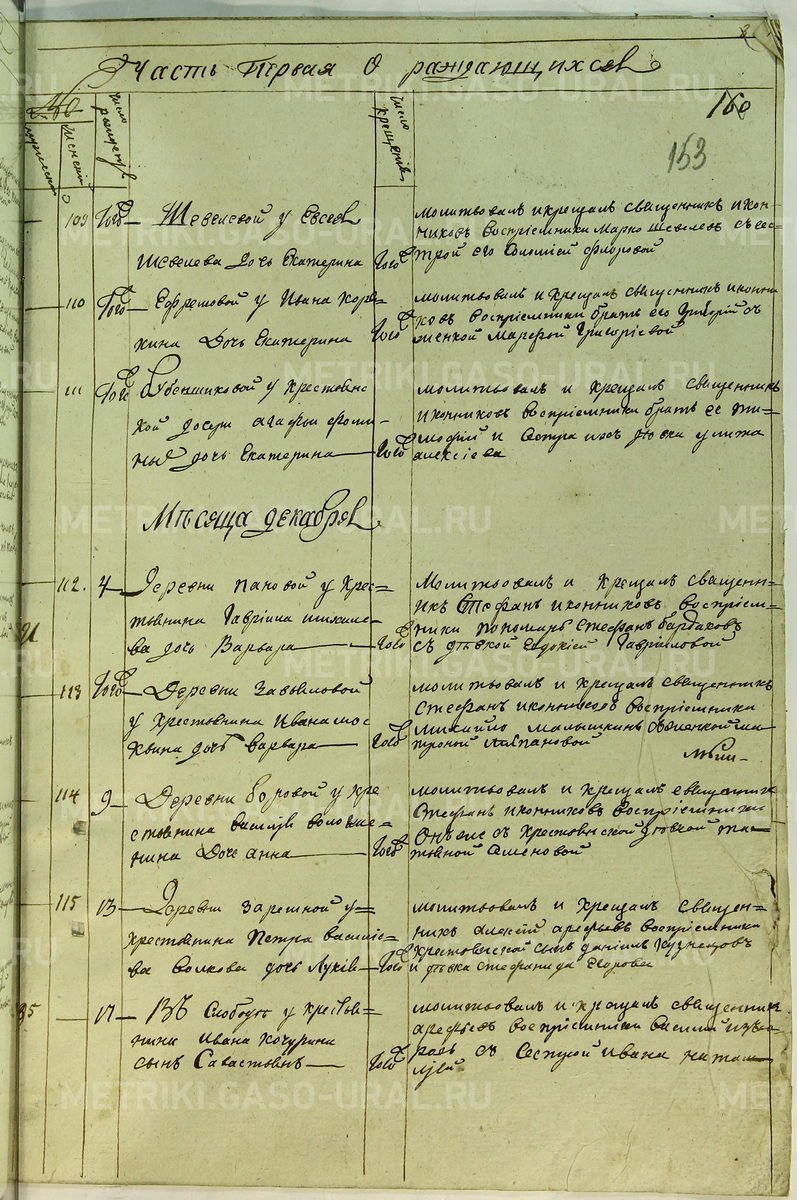 Часть первая о раждающихся
160
153
число рожденiя
число крещенiя
женской
109 Того Шевелевой у Евсея
Шевелева дочь Екатерина Того
молитвовалъ и крещалъ священникъ икон-
никовъ воспрiемники Марко Шевелевъ съ сес-
трой его Соломiей флоровой
110 Того Ефремовой у Ивана
дочь Екатерина Того
молитвовалъ и крещалъ священникъ иконни-
ковъ воспрiемники братъ его Григорiй съ
женкой Марфой Григорiевой
111 Того Губенщиковой у крестьянс-
кой дочери агафьи фоми-
ны дочь Екатерина Того
молитвовалъ и крещалъ священникъ
иконниковъ воспрiемники братъ ее ти-
мофей и девка улита
алексiева
Мѣсяца декабря
112. 4 Деревни пановой у крес-
тьянина Гаврiила михале-
ва дочь Варвара Того
Молитвовалъ и крещалъ священн-
икъ Стефанъ иконниковъ воспрiем-
ники пономарь Стефанъ
съ дѣвкой Евдокiей Гаврiиловой
113 Того Деревни Завьяловой
у крестьянина Ивана мос-
квина дочь варвара Того
молитвовалъ и крещалъ священникъ
Стефанъ иконниковъ воспрiемники
михайло малышкинъ съ женкой ма-
троной
114 9 Деревни боровой у кре-
стьянина василiя воложе-
нина дочь анна Того
молитвовалъ и крещалъ священникъ
Стефанъ иконниковъ воспрiемники
Онъ же съ крестьянской дѣвкой тать-
янной Семеновой
115 13 Деревни Заречной у
крестьянина Петра василiе-
ва волкова дочь Лукiя Того
молитвовалъ и крещалъ священ-
никъ алексiй арефьевъ воспрiемники
крестьянской сынъ данiилъ кузнецовъ
и дѣвка Стефанида Егорова
85 17 Въ Слободѣ у крестья-
нина Ивана кочурина
сынъ Савастьянъ Того
молитвовалъ и крещалъ священникъ
арефьевъ воспрiемники василiй
съ Сестрой ивана наталь-
ей
METRIKI.GASO-URAL.RU